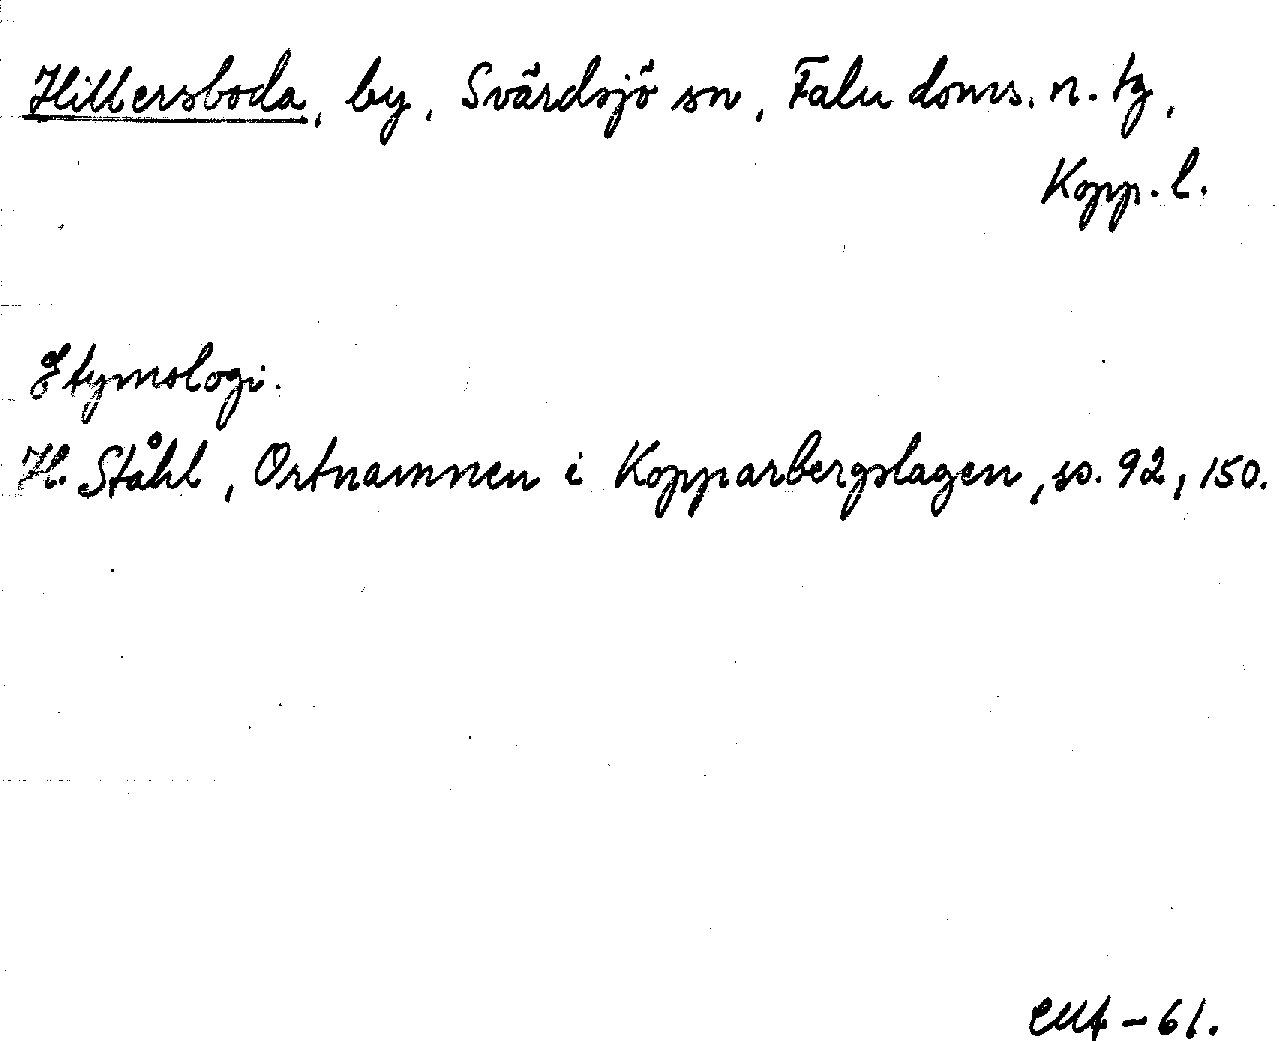 Hillersboda, by, Svärdsjö sn, Falu doms. n. tg,
Kopp. l.
Etymologi.
H. Ståhl, Ortnamnen i Kopparbergslagen, s. 92, 150.
-61.